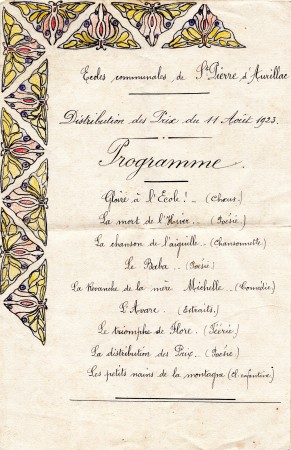 Ecoles communales de St Pierre d'Aurillac
Distribution des Prix du 11 Août 1923.
Programme.
Gloire à l'Ecole! - (Chœur.)
La mort de l'Hiver .. (Poésie.)
La chanson de l'aiguille - (Chansonnette)
Le Baba .. (Poésie)
La Revanche de la mère Michelle .. (Comédie)
L'Avare . (Extraits.)
Le triomphe de Flore . (Féérie)
La distribution des Prix. (Poésie)
Les petits nains de la montagne (Ch. enfantine)